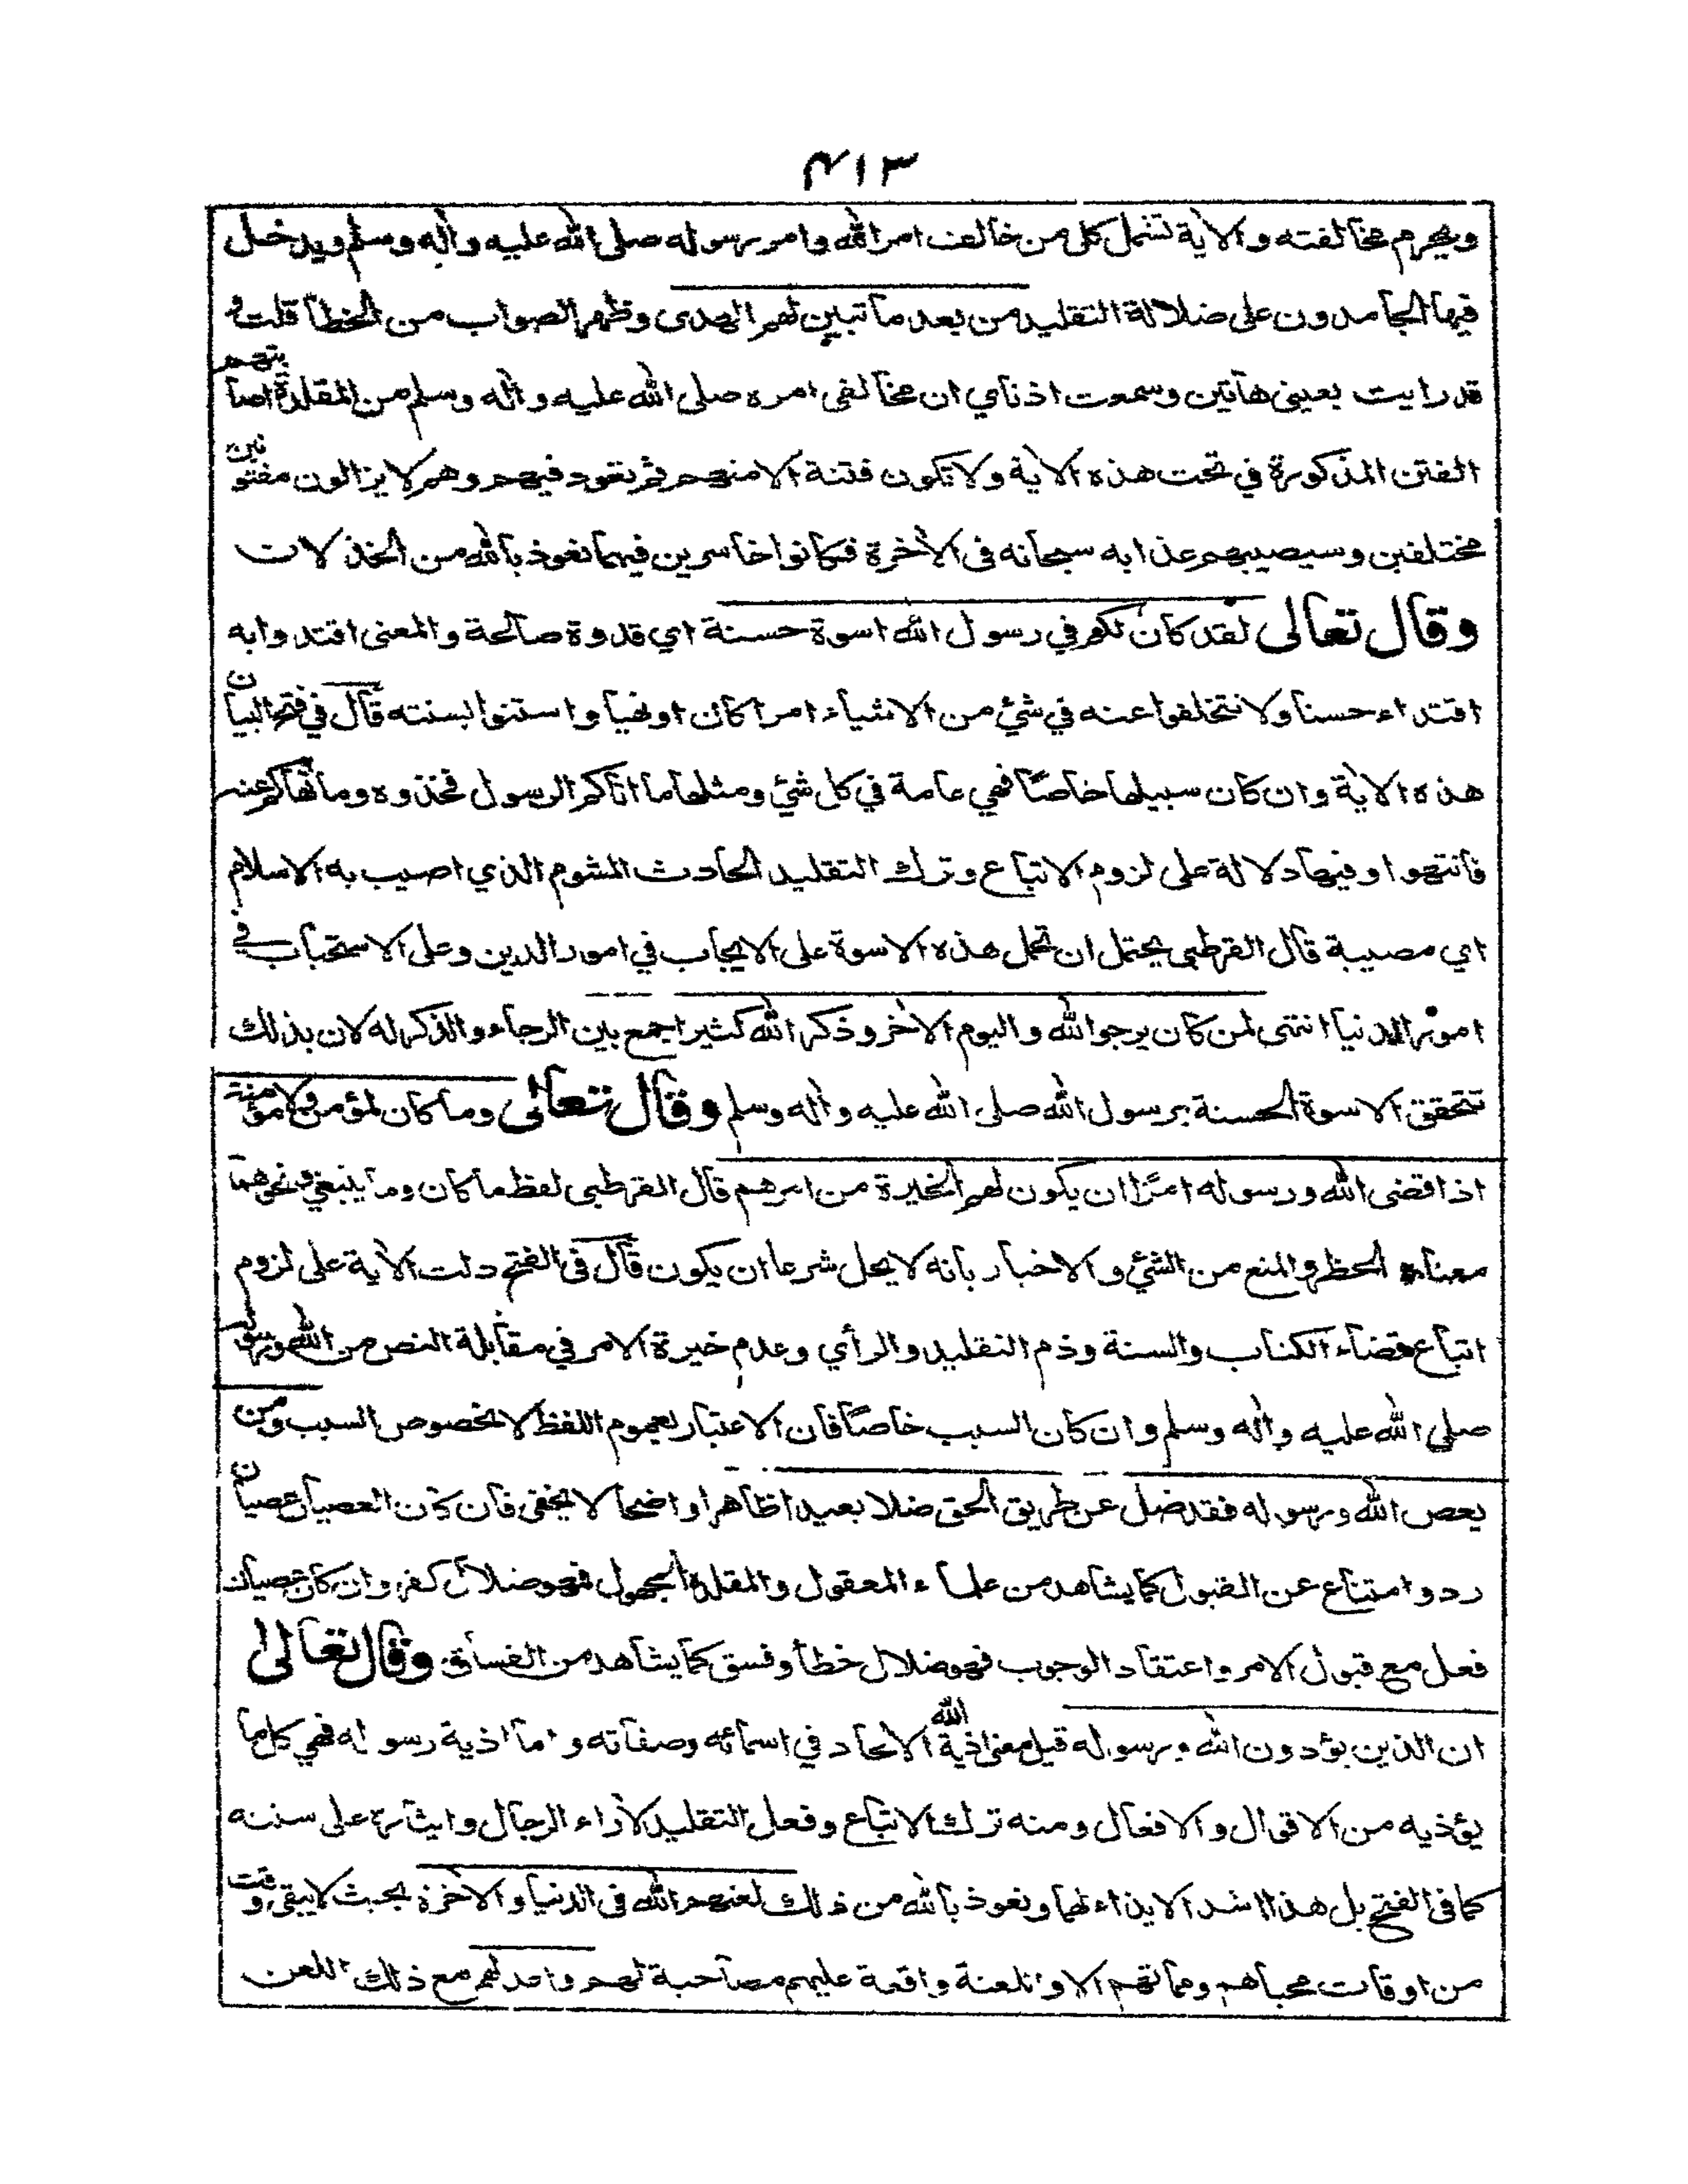 ٤١٣
ويحرم مخالفته والاية تشمل كل من خالف امر الله وامر رسوله صلى الله عليه واله وسلم ويدخل
فيها الجامدون على ضلالة التقليد من بعد ما تبين لهم الهدى وظهر الصواب من الخطأ قلت و
قد رايت بعيني هاتين وسمعت اذناي ان مخالفي امره صلى الله عليه واله وسلم من المقلدة اصابتهم
الفتن المذكورة في تحت هذه الاية ولا تكون فتنة الا منهم ثم تعود فيهم وهم لا يزالون مفتونين
مختلفين وسيصيبهم عذابه سبحانه في الاخرة فكانوا خاسرين فيهما نعوذ بالله من الخذلان
وقال تعالى لقد كان لكم في رسول الله اسوة حسنة اي قدوة صالحة والمعنى اقتدوا به
اقتداء حسنا ولا تتخلفوا عنه في شئ من الاشياء امرا كان او نهيا واستنوا بسنته قال في فتح البيان
هذه الاية وان كان سبيلها خاصا فهي عامة في كل شئ ومثلها ما اتاكم الرسول فخذوه وما نهاكم عنه
فانتهوا وفيها دلالة على لزوم الاتباع وترك التقليد الحادث المشوم الذي اصيب به الاسلام
اي مصيبة قال القرطبي يحتمل ان تحمل هذه الاسوة على الايجاب في امور الدين وعلى الاستحباب في
امور الدنيا انتهى لمن كان يرجو الله واليوم الاخر وذكر الله كثيرا جمع بين الرجاء والذكر له لان بذلك
تتحقق الاسوة الحسنة برسول الله صلى الله عليه واله وسلم وقال تعالى وما كان لمؤمن ولا مؤمنة
اذا قضى الله ورسوله امرًا ان يكون لهم الخيرة من امرهم قال القرطبي لفظ ما كان وما ينبغي ونحوهما
معناه الحظر والمنع من الشئ والاخبار بانه لا يحل شرعا ان يكون قال في الفتح دلت الاية على لزوم
اتباع قضاء الكتاب والسنة وذم التقليد والرأي وعدم خيرة الامر في مقابلة النص من الله ورسوله
صلى الله عليه واله وسلم وان كان السبب خاصًا فان الاعتبار لعموم اللفظ لا لخصوص السبب ومن
يعص الله ورسوله فقد ضل عن طريق الحق ضلا بعيدا ظاهرا واضحا لا يخفى فان كان العصيان عصيان
رد وامتناع عن القبول كما يشاهد من علماء المعقول والمقلدة الجهول فهو ضلال كفر وان كان عصيان
فعل مع قبول الامر واعتقاد الوجوب فهو ضلال خطأ وفسق كما يشاهد من الفساق وقال تعالى
ان الذين يؤذون الله ورسوله قيل معنى اذية الله الالحاد في اسمائه وصفاته واما اذية رسوله فهي كل ما
يؤذيه من الاقوال والافعال ومنه ترك الاتباع وفعل التقليد لاراء الرجال وايثاره على سننه
كما في الفتح بل هذا اشد الايذاء لهما ونعوذ بالله من ذلك لعنهم الله في الدنيا والاخرة بحيث لا يبقى وقت
من اوقات محياهم ومماتهم الا واللعنة واقعة عليهم مصاحبة لهم واعد لهم مع ذلك اللعن